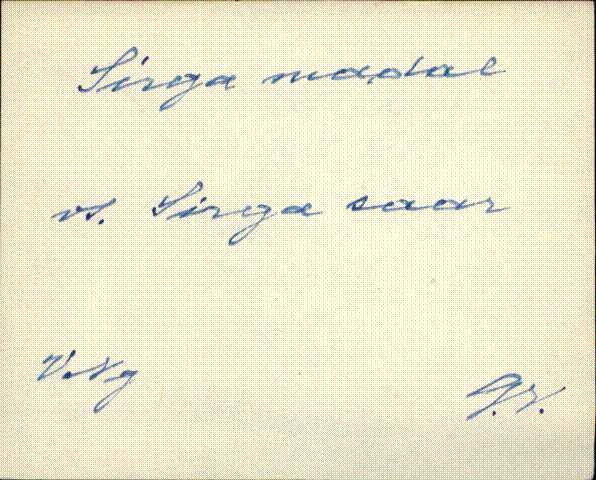 Sirga madal
vt. Sirga saar
V.Ng